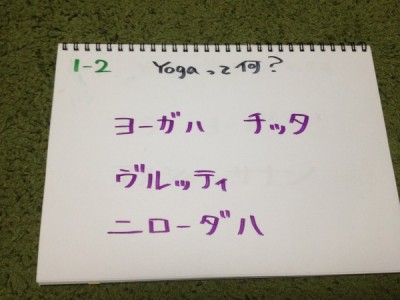 1-2 Yogaって何?
ヨーガハ チッタ
ヴルッティ
ニローダハ